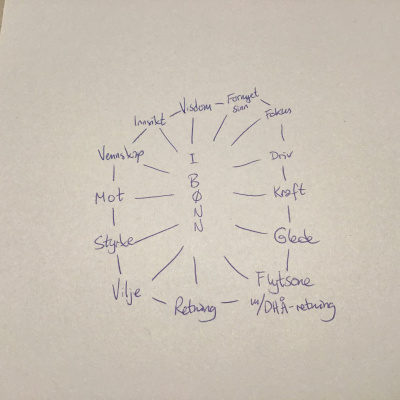 Visdom
Fornyet
sinn
Fokus
Driv
Kraft
Glede
Flytsone
m/DHÅ-retning
Retning
Vilje
Styrke
Mot
Vennskap
Innsikt
I
B
Ø
N
N